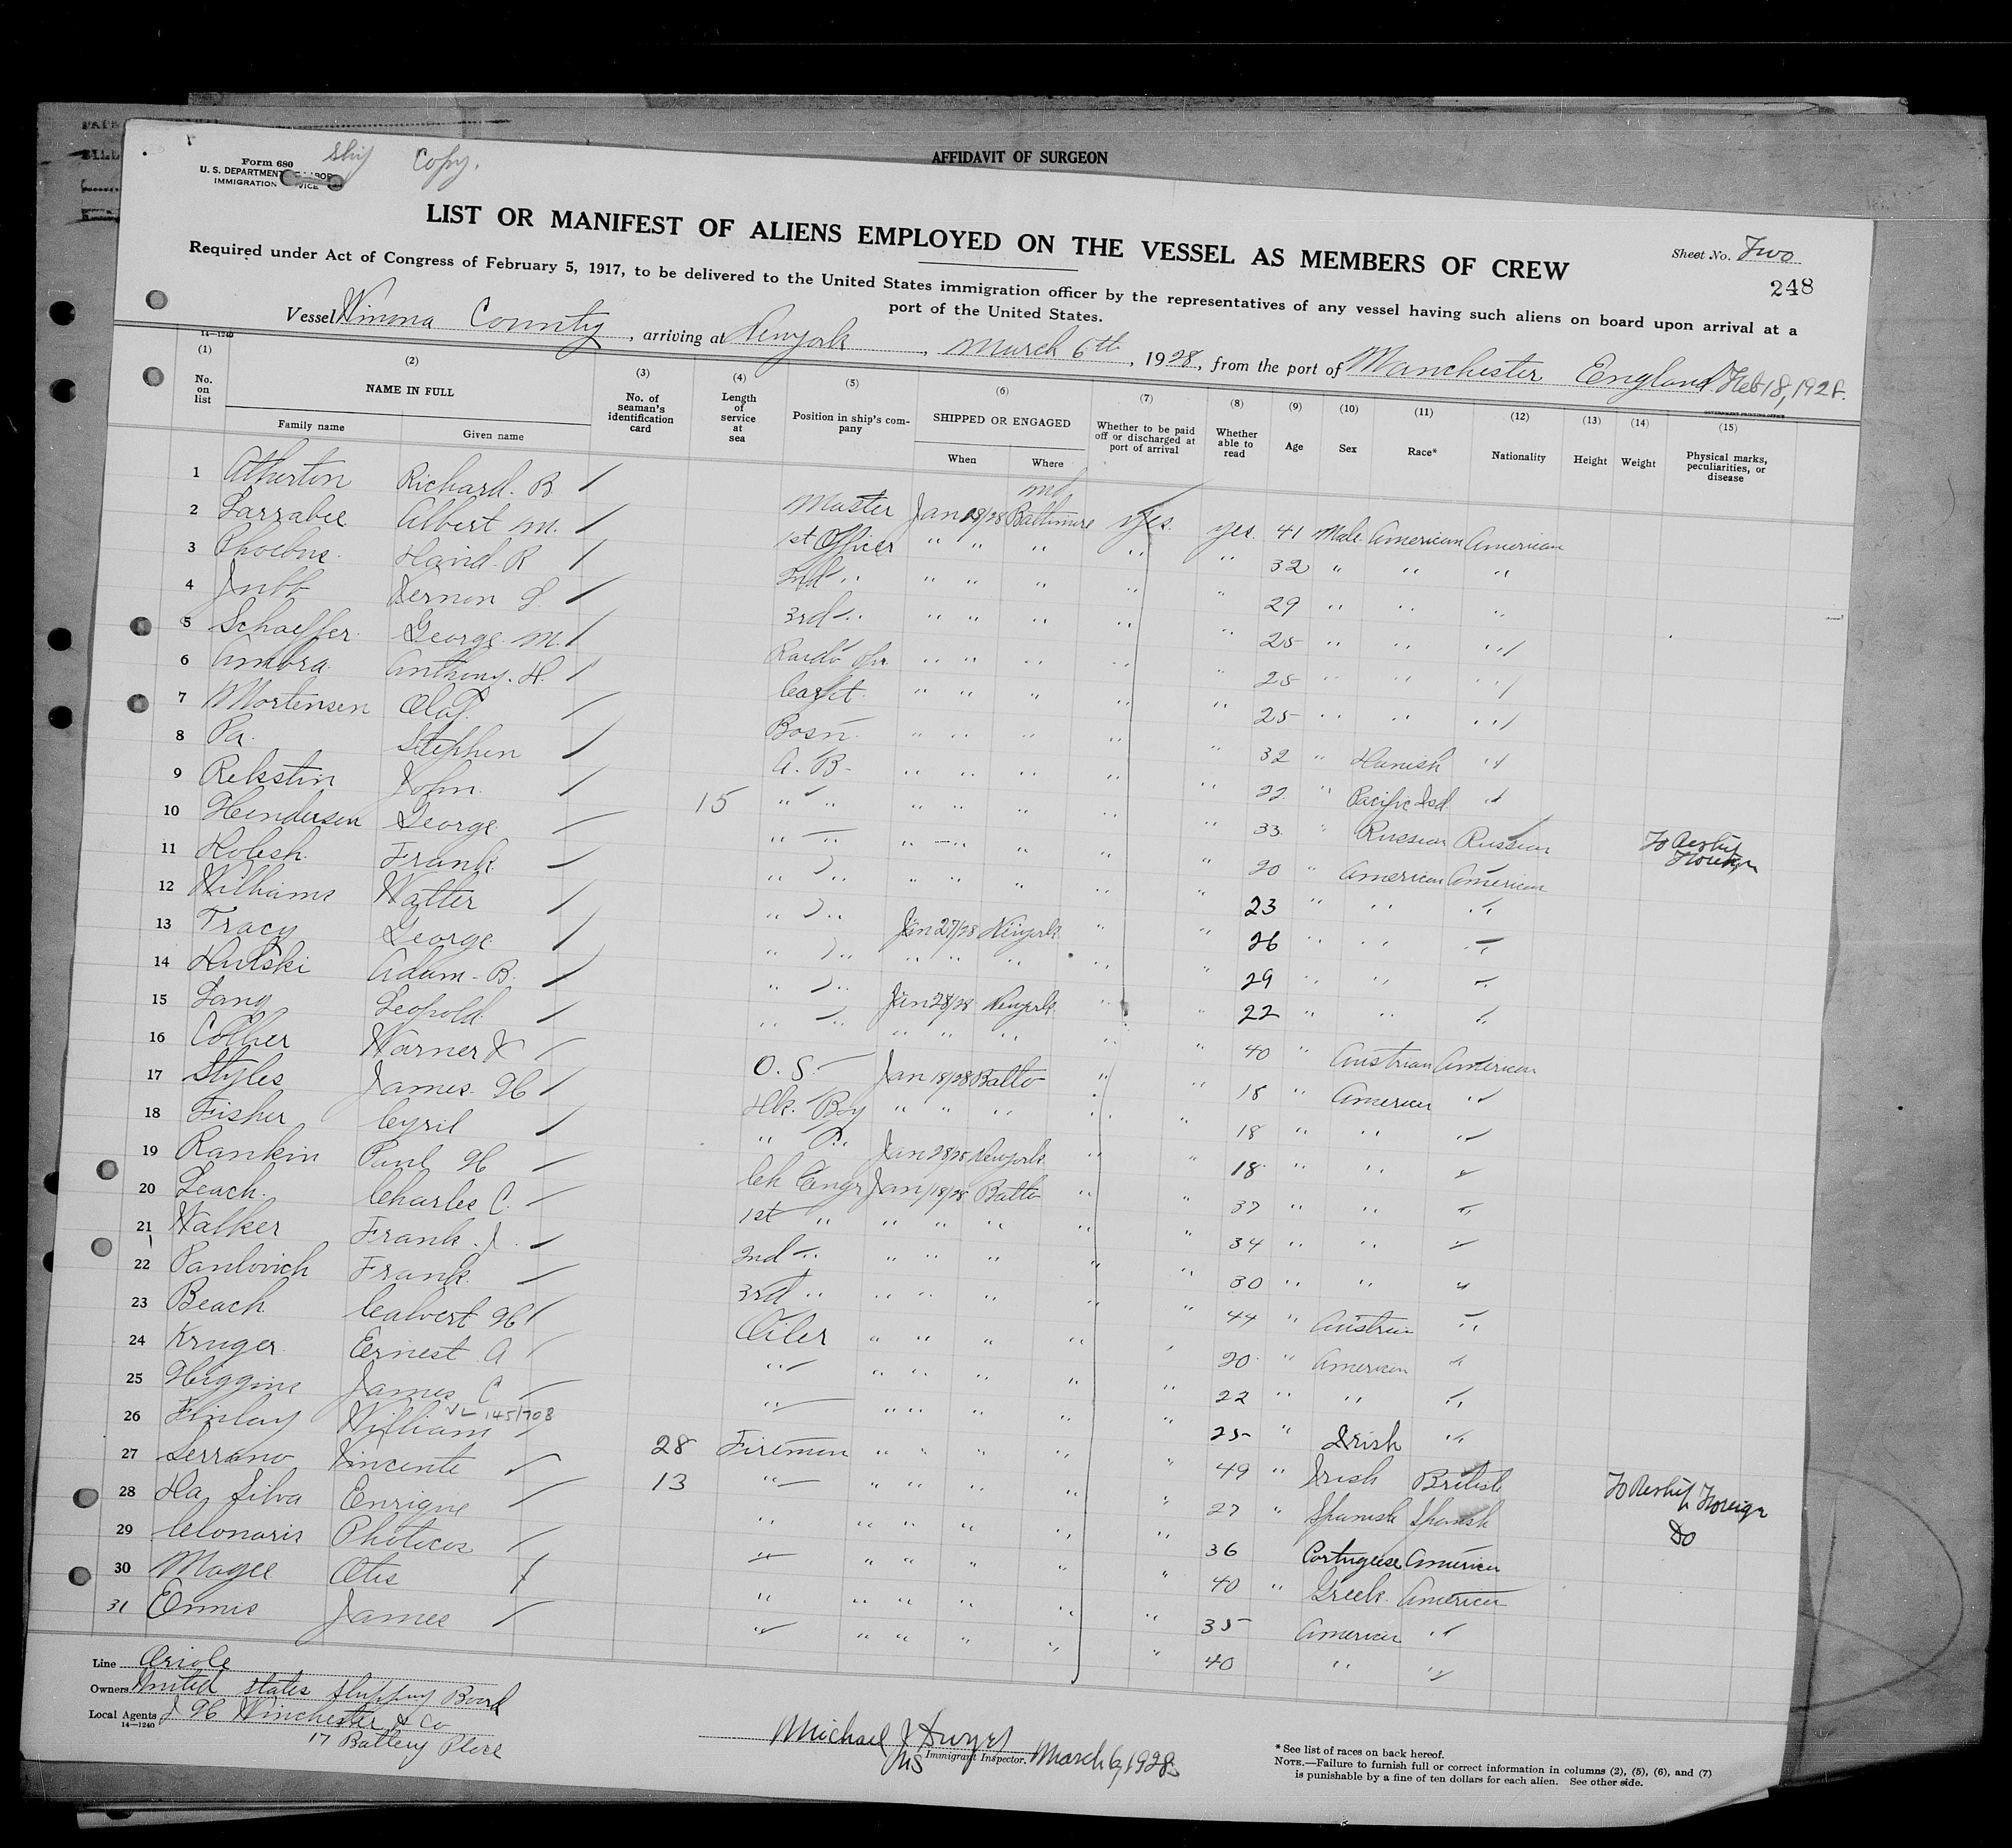 AFFIDAVIT OF SURGEON
Form 680
U. S. DEPARTMENT LABOR
IMMIGRATION
Ship Copy.
LIST OR MANIFEST OF ALIENS EMPLOYED ON THE VESSEL AS MEMBERS OF CREW
Sheet No. Two
248
Required under Act of Congress of February 5, 1917, to be delivered to the United States immigration officer by the representatives of any vessel having such aliens on board upon arrival at a
port of the United States.
Vessel Winona County, arriving at Newyork, March 6th, 1928, from the port of Manchester England. Feb 18, 1928.
14—1240
GOVERNMENT PRINTING OFFICE
(1) (2) (3) (4) (5) (6) (7) (8) (9) (10) (11) (12) (13) (14) (15)
No. on list
NAME IN FULL
Family name
Given name
No. of seaman's identification card
Length of service at sea
Position in ship's company
SHIPPED OR ENGAGED
When
Where
Whether to be paid off or discharged at port of arrival
Whether able to read
Age
Sex
Race*
Nationality
Height
Weight
Physical marks, peculiarities, or disease
1 Atherton Richard. B. Master Jan 18/28 Baltimore Md yes. yes. 41 Male American American
2 Larrabee Albert M. 1st Officer " " " " " 32 " " "
3 Phoebus. David. R 2nd " " " " " " 29 " " "
4 Jubb Vernon L. 3rd " " " " " " 25 " " "
5 Schaeffer. George. M. Radio Opr " " " " " 25 " " "
6 Amora. Anthony. H. Carpt. " " " " " 25 " " "
7 Mortensen Olaf. Bosn. " " " " " 32 " Danish "
8 Pa. Stephen A. B. " " " " " 22 " Pacific Isd. "
9 Rekstin John. 15 " " " " " " " 33 " Russian Russian To Reship Foreign
10 Henderson George. " " " " " " " 20 " American American
11 Kolesh. Frank. " " " " " " " 23 " " "
12 Williams Walter " " Jan 27/28 Newyork " " 26 " " "
13 Tracy George " " " " " " " 29 " " "
14 Adam. B. " " Jan 28/28 Newyork " " 22 " " "
15 Lang Leopold. " " " " " " " 40 " Austrian American
16 Collier Warner O. S. Jan 18/28 Balto " " 18 " American "
17 Styles James. H Dk. Boy " " " " " 18 " " "
18 Fisher Cyril " " Jan 28/28 Newyork " " 18 " " "
19 Rankin Paul H Ch Engr Jan 18/28 Balto " " 37 " " "
20 Leach. Charles C. 1st " " " " " " 34 " " "
21 Walker Frank. J. 2nd " " " " " " 30 " " "
22 Pavlovich Frank. 3rd " " " " " " 44 " Austrian "
23 Beach Calvert H Oiler " " " " " 20 " American "
24 Kruger. Ernest A " " " " " " 22 " " "
25 Higgins James C. " " " " " " 25 " Irish "
VL 145/708
26 Finlay William 28 Firemen " " " " " 49 " Irish British To Reship Foreign
27 Serrano Vincente 13 " " " " " " 27 " Spanish Spanish Do
28 Da Silva Enrique " " " " " " 36 Portuguese American
29 Clonaris Photicos " " " " " " 40 " Greek. American
30 Magee Otis " " " " " " 35 American "
31 Ennis James " " " " " " 40 " "
Line Oriole
Owners United States Shipping Board
Local Agents J H Winchester & Co
14—1240
17 Battery Place
Michael J Dwyer
Immigrant Inspector. March 6, 1928
* See list of races on back hereof.
NOTE.—Failure to furnish full or correct information in columns (2), (5), (6), and (7)
is punishable by a fine of ten dollars for each alien. See other side.